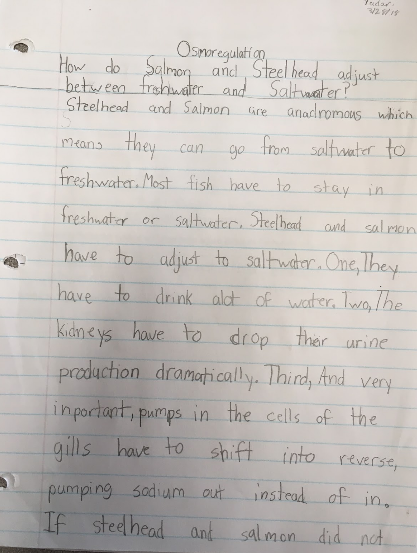 3/29/18
Osmoregulation
How do Salmon and Steelhead adjust
between freshwater and Saltwater?
Steelhead and Salmon are anadromous which
means they can go from saltwater to
freshwater. Most fish have to stay in
freshwater or saltwater. Steelhead and salmon
have to adjust to saltwater. One, They
have to drink alot of water. Two, The
kidneys have to drop their urine
production dramatically. Third, And very
inportant, pumps in the cells of the
gills have to shift into reverse,
pumping sodium out instead of in.
If steelhead and salmon did not